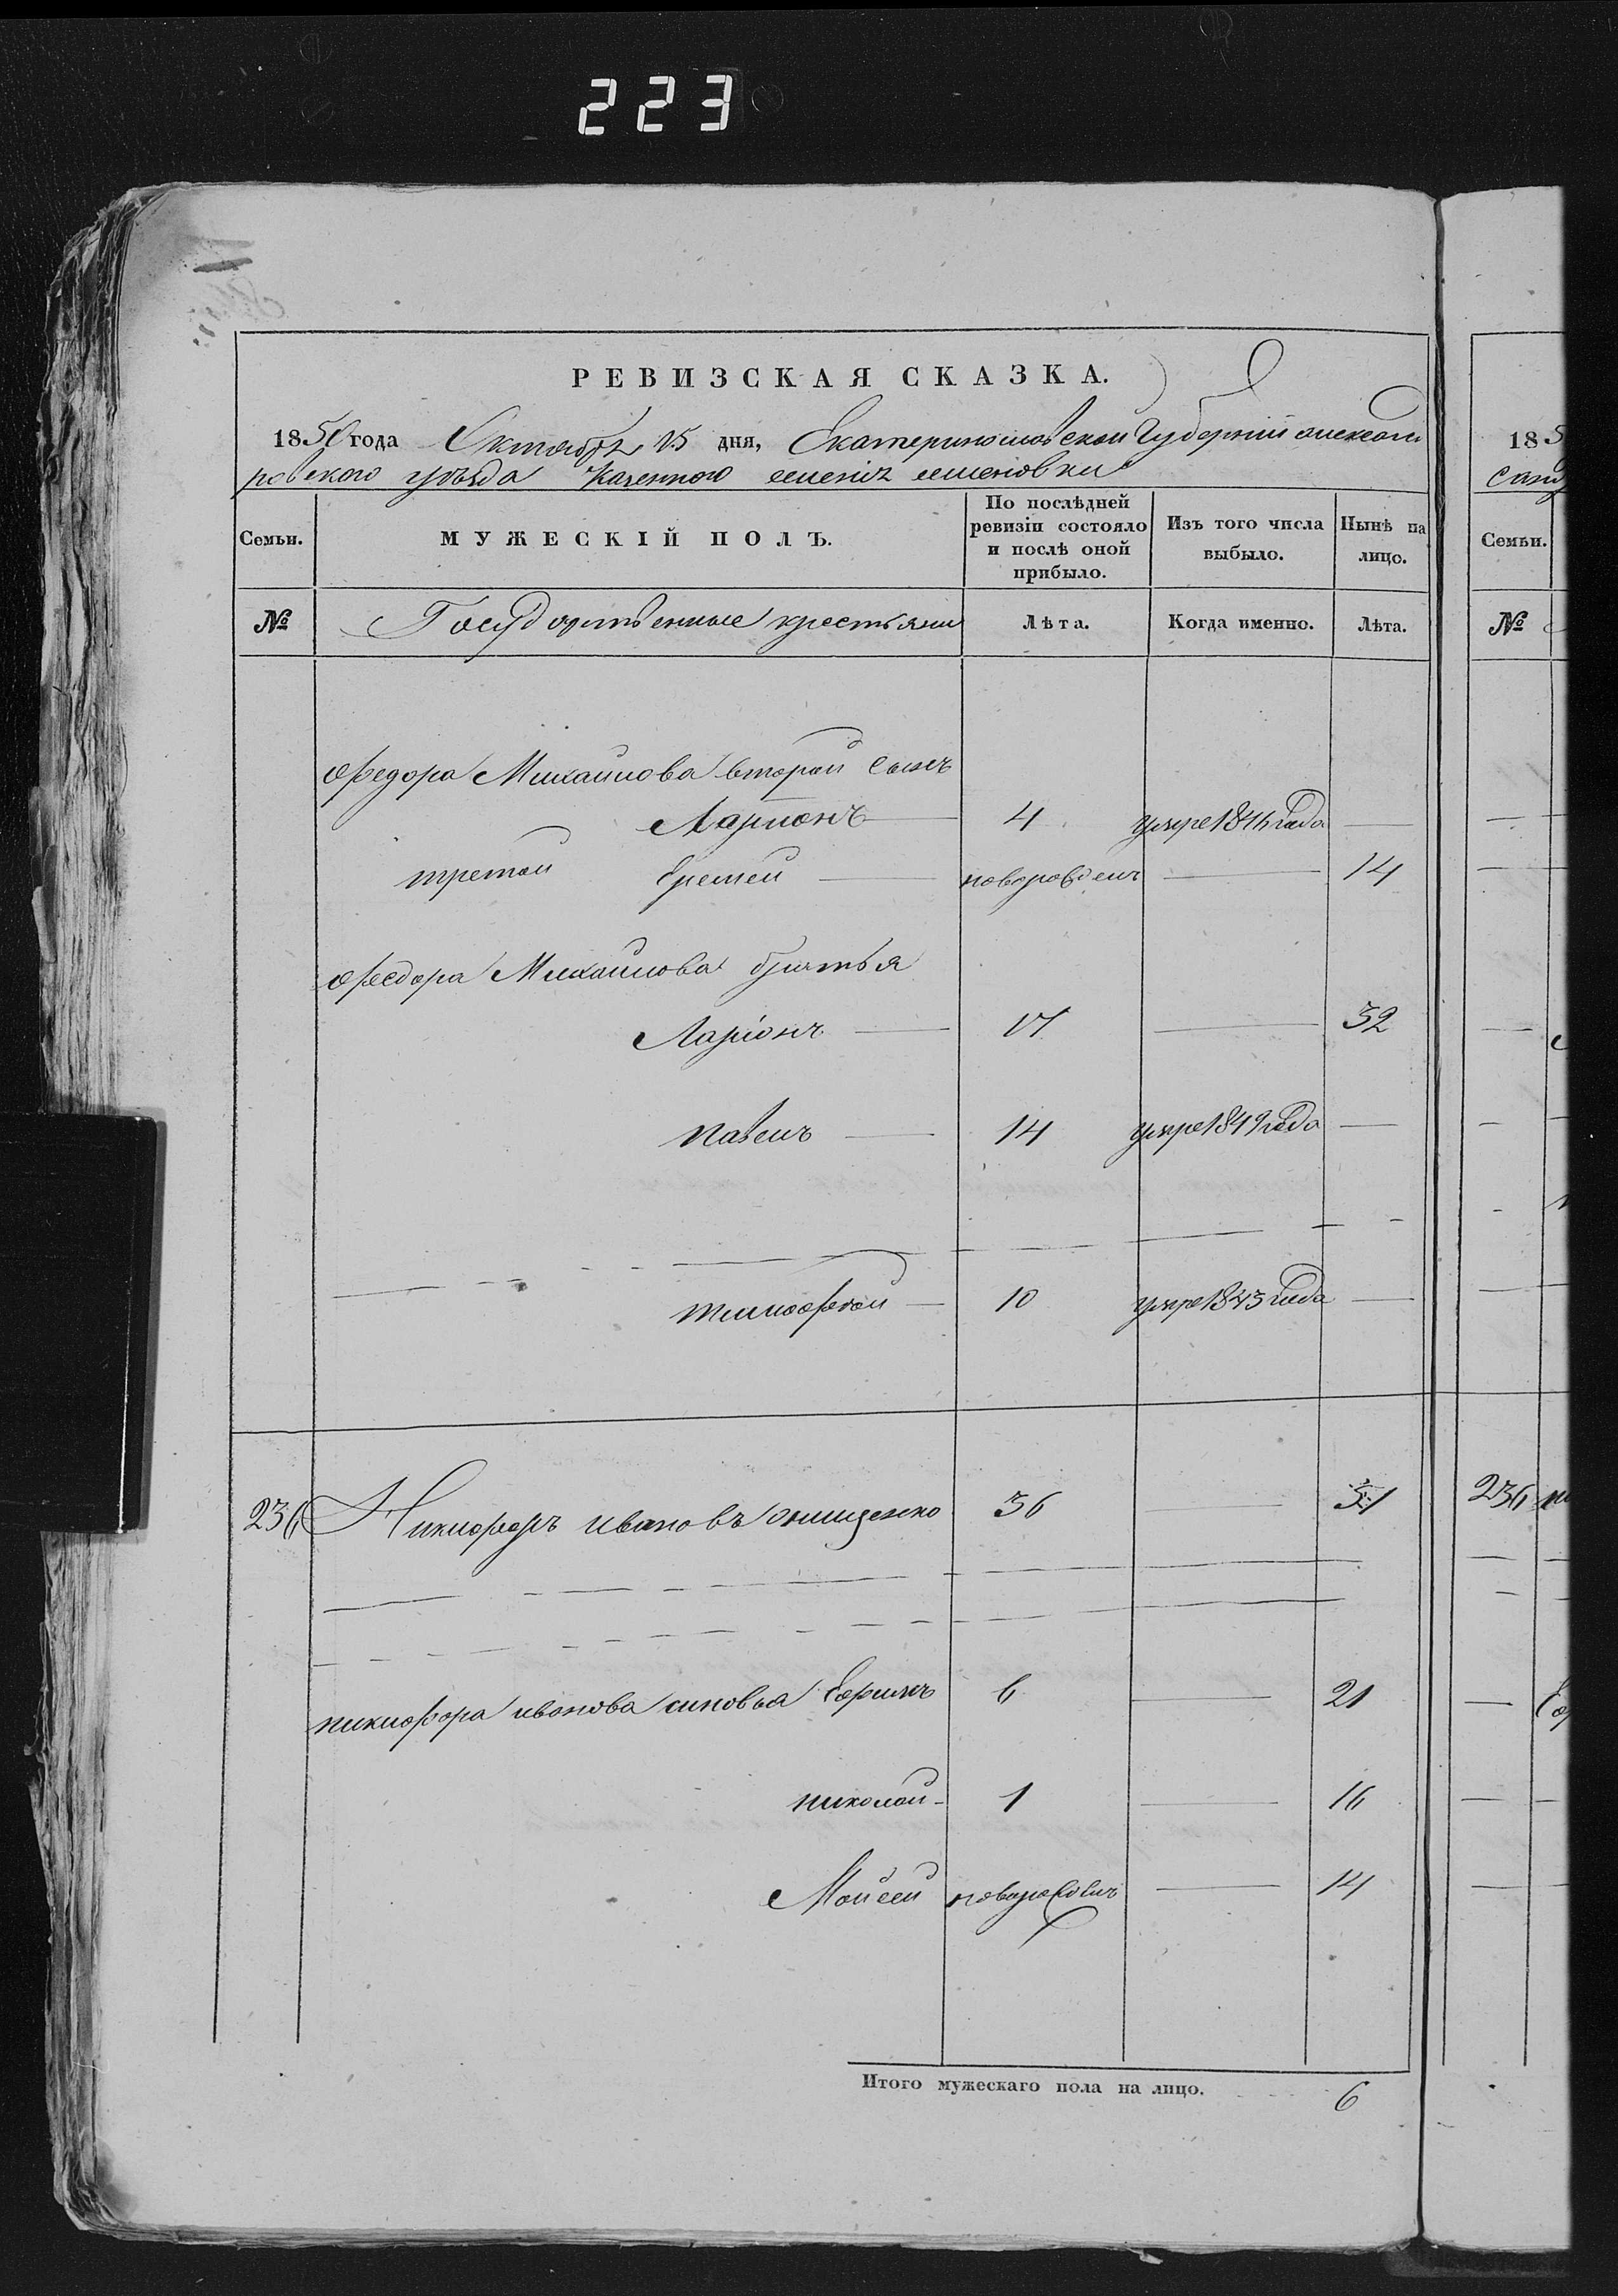 223
РЕВИЗСКАЯ СКАЗКА.
1850 года Октября 15 дня, Екатеринославской Губернии александ
ровского уезда казенного селения семеновки
Семьи.
МУЖЕСКІЙ ПОЛЪ.
По послѣдней ревизіи состояло и послѣ оной прибыло.
Изъ того числа выбыло.
Нынѣ на лицо.
№ Государственные крестьяни Лѣта. Когда именно. Лѣта.
Федора Михайлова второй сынъ
Ларионъ 4 умре 1846 года
третой Еремей новорожденъ 14
Федора Михайлова братья
Ларіонъ 17 32
павелъ 14 умре 1849 года
тимофеой 10 умре 1843 года
236 Никифоръ ивановъ онищенко 36 51
никифора иванова синовья Ефимъ 6 21
николай 1 16
Мойсей новорожденъ 14
Итого мужескаго пола на лицо. 6
185
Семьи.
№
236